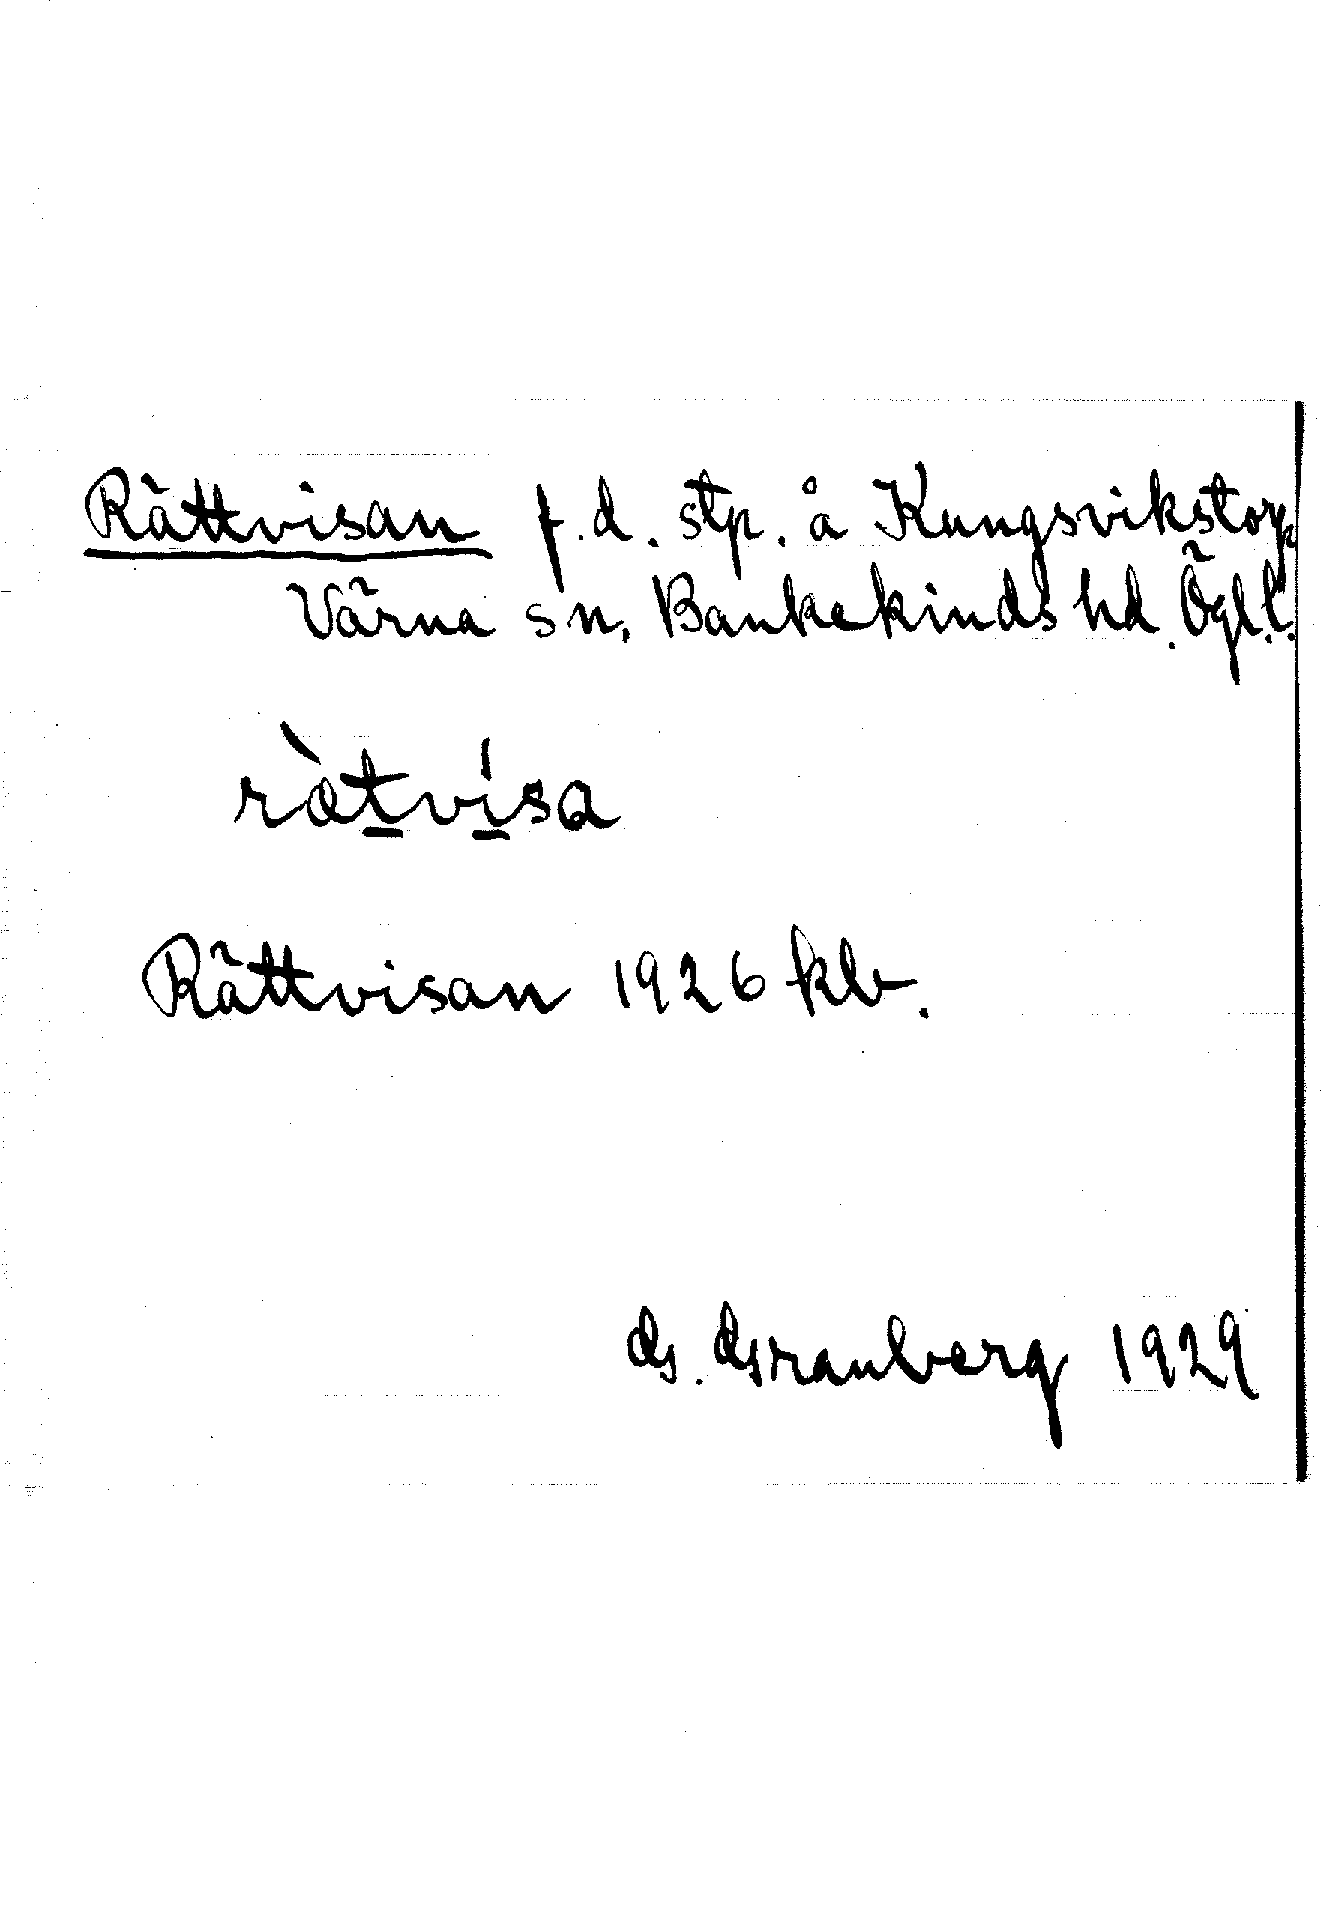 Rättvisan f.d. stp. å Kungsvikstorp
Värna sn. Bankekinds hd. Ögl.l.
ràtvísa
Rättvisan 1926 klv.
G. Granberg 1929